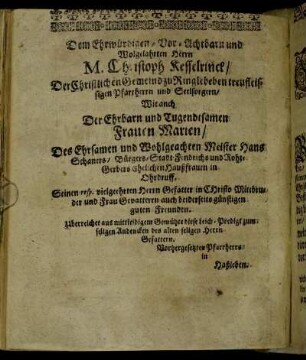 Dem Ehrwürdigen, Vor-Achtbarn und
Wolgelahrten Herrn
M. Christoph Kesselrinck/
Der Christlichen Gemeind zu Ringleben treufleis-
sigen Pfarrherrn und Seelsorgern/
Wie auch
Der Ehrbarn und Tugendsamen
Frauen Marien/
Des Ehrsamen und Wohlgeachten Meister Hans
Schaners/ Bürgers/ Stadt-Fendrichs und Roht-
Gerbers Ehelichen Haußfrauen in
Ohrdruff.
Seinen resp. vielgeehrten Herrn Gefatter in Christo Mitbru-
der und Frau Gevatteren auch beiderseits günstigen
guten Freunden.
Überreichet aus mittleidigem Gemühte diese Leich-Predigt zum
seligen Andencken des alten seligen Herrn
Gefattern.
Vorhergesetzten Pfarrherrs
in
Haßleben.